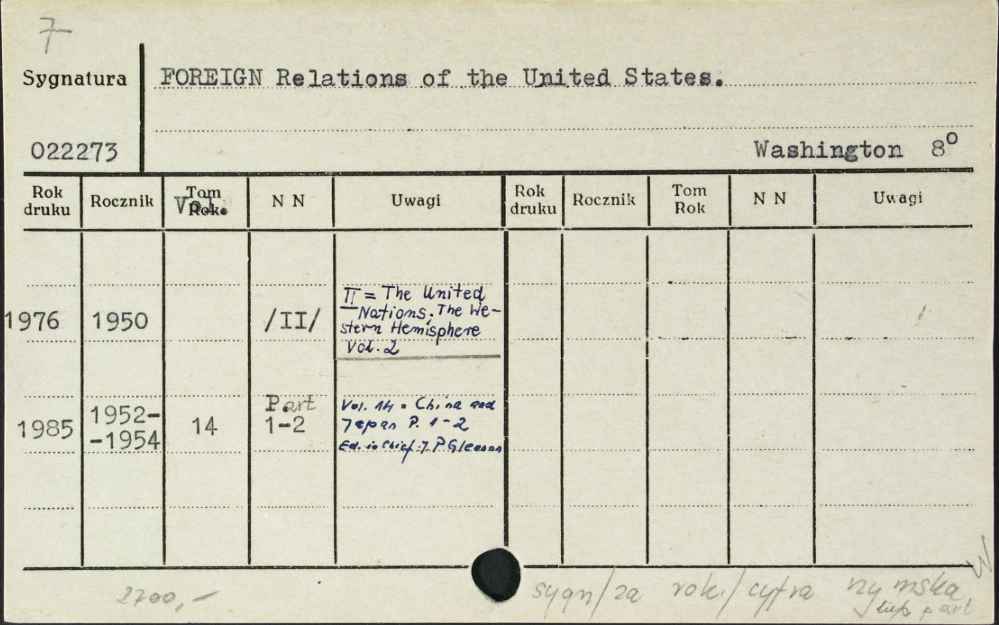 7
Sygnatura
FOREIGN Relations of the United States.
022273
Washington 8º
Rok druku
Rocznik
Tom Rok.
Vol.
N N
Uwagi
Rok druku
Rocznik
Tom Rok
N N
Uwagi
1976 1950 /II/
II = The United
Nations. The We-
stern Hemisphere
Vol. 2
1985
1952-
-1954
14
Part
1-2
Vol. 14 = China and
Japan P. 1-2
Ed. in Chief: J. P. Gleason
2700,-
sygn/za rok/cyfra rzymska
lub part